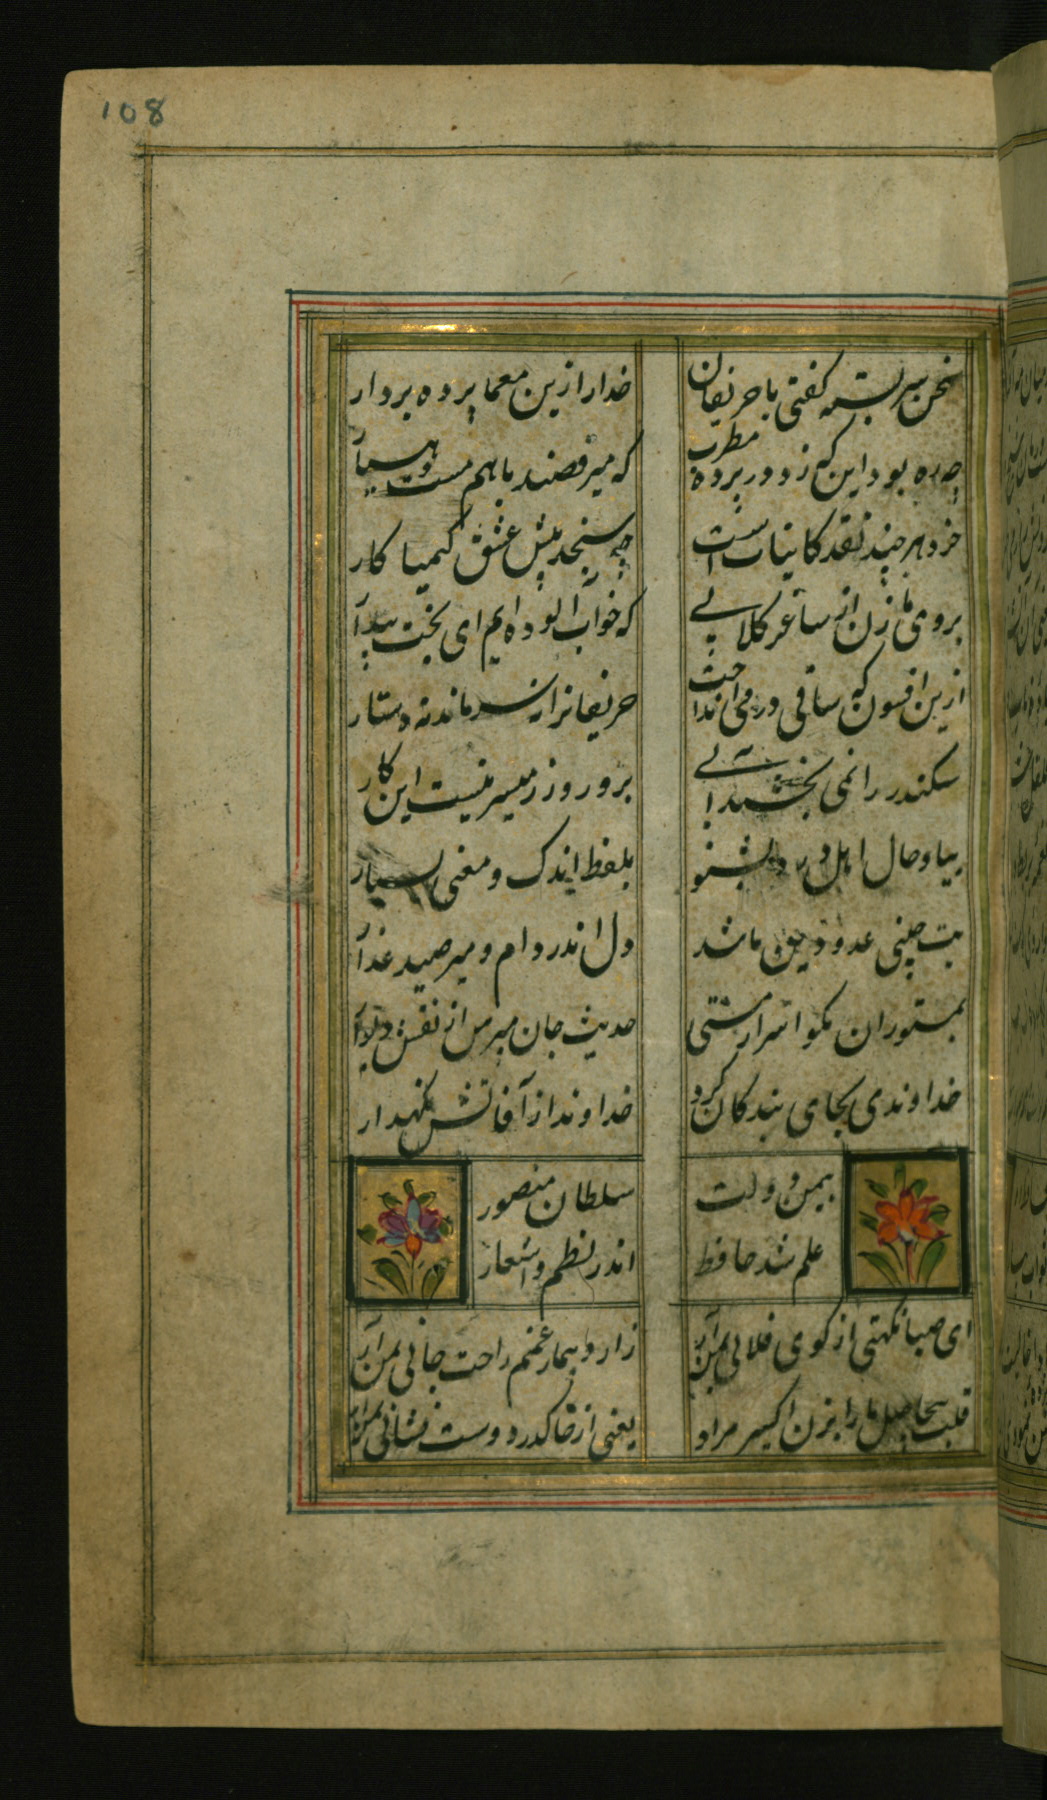 108
سخن سربسته گفتی با حریفان
خدارا زین معما پرده بردار
چه ره بود این که زد در پرده مطرب
که میرقصند باهم مست و هشیار
خرد هر چند نقد کاینات است
چه سنجد پیش عشق کیمیا کار
بروی ما زن از ساغر کلابی
که خواب آلوده ایم ای بخت بیدار
ازین افسون که ساقی در می انداخت
حریفانرا نه سر ماند نه دستار
سکندر را نمی بخشند آبی
بزور و زر میسر نیست این کار
بیا و حال اهل درد بشنو
بلفظ اندک و معنی بسیار
بت چینی عدو دین ما شد
دل اندر دام و میر صید غدار
بمستوران مگو اسرار مستی
حدیث جان مپرس از نقش دیوار
خداوندی بجای بندگان کرد
خداوندا از آفاتش نگهدار
بیمن دولت
سلطان منصور
علم شد حافظ
اندر نظم و اشعار
ای صبا نکهتی از کوی فلانی بمن آر
زار و بیمار غمم راحت جانی بمن آر
قلب بیحاصل ما را بزن اکسیر مراد
یعنی از خاک در دوست نشانی بمن آر